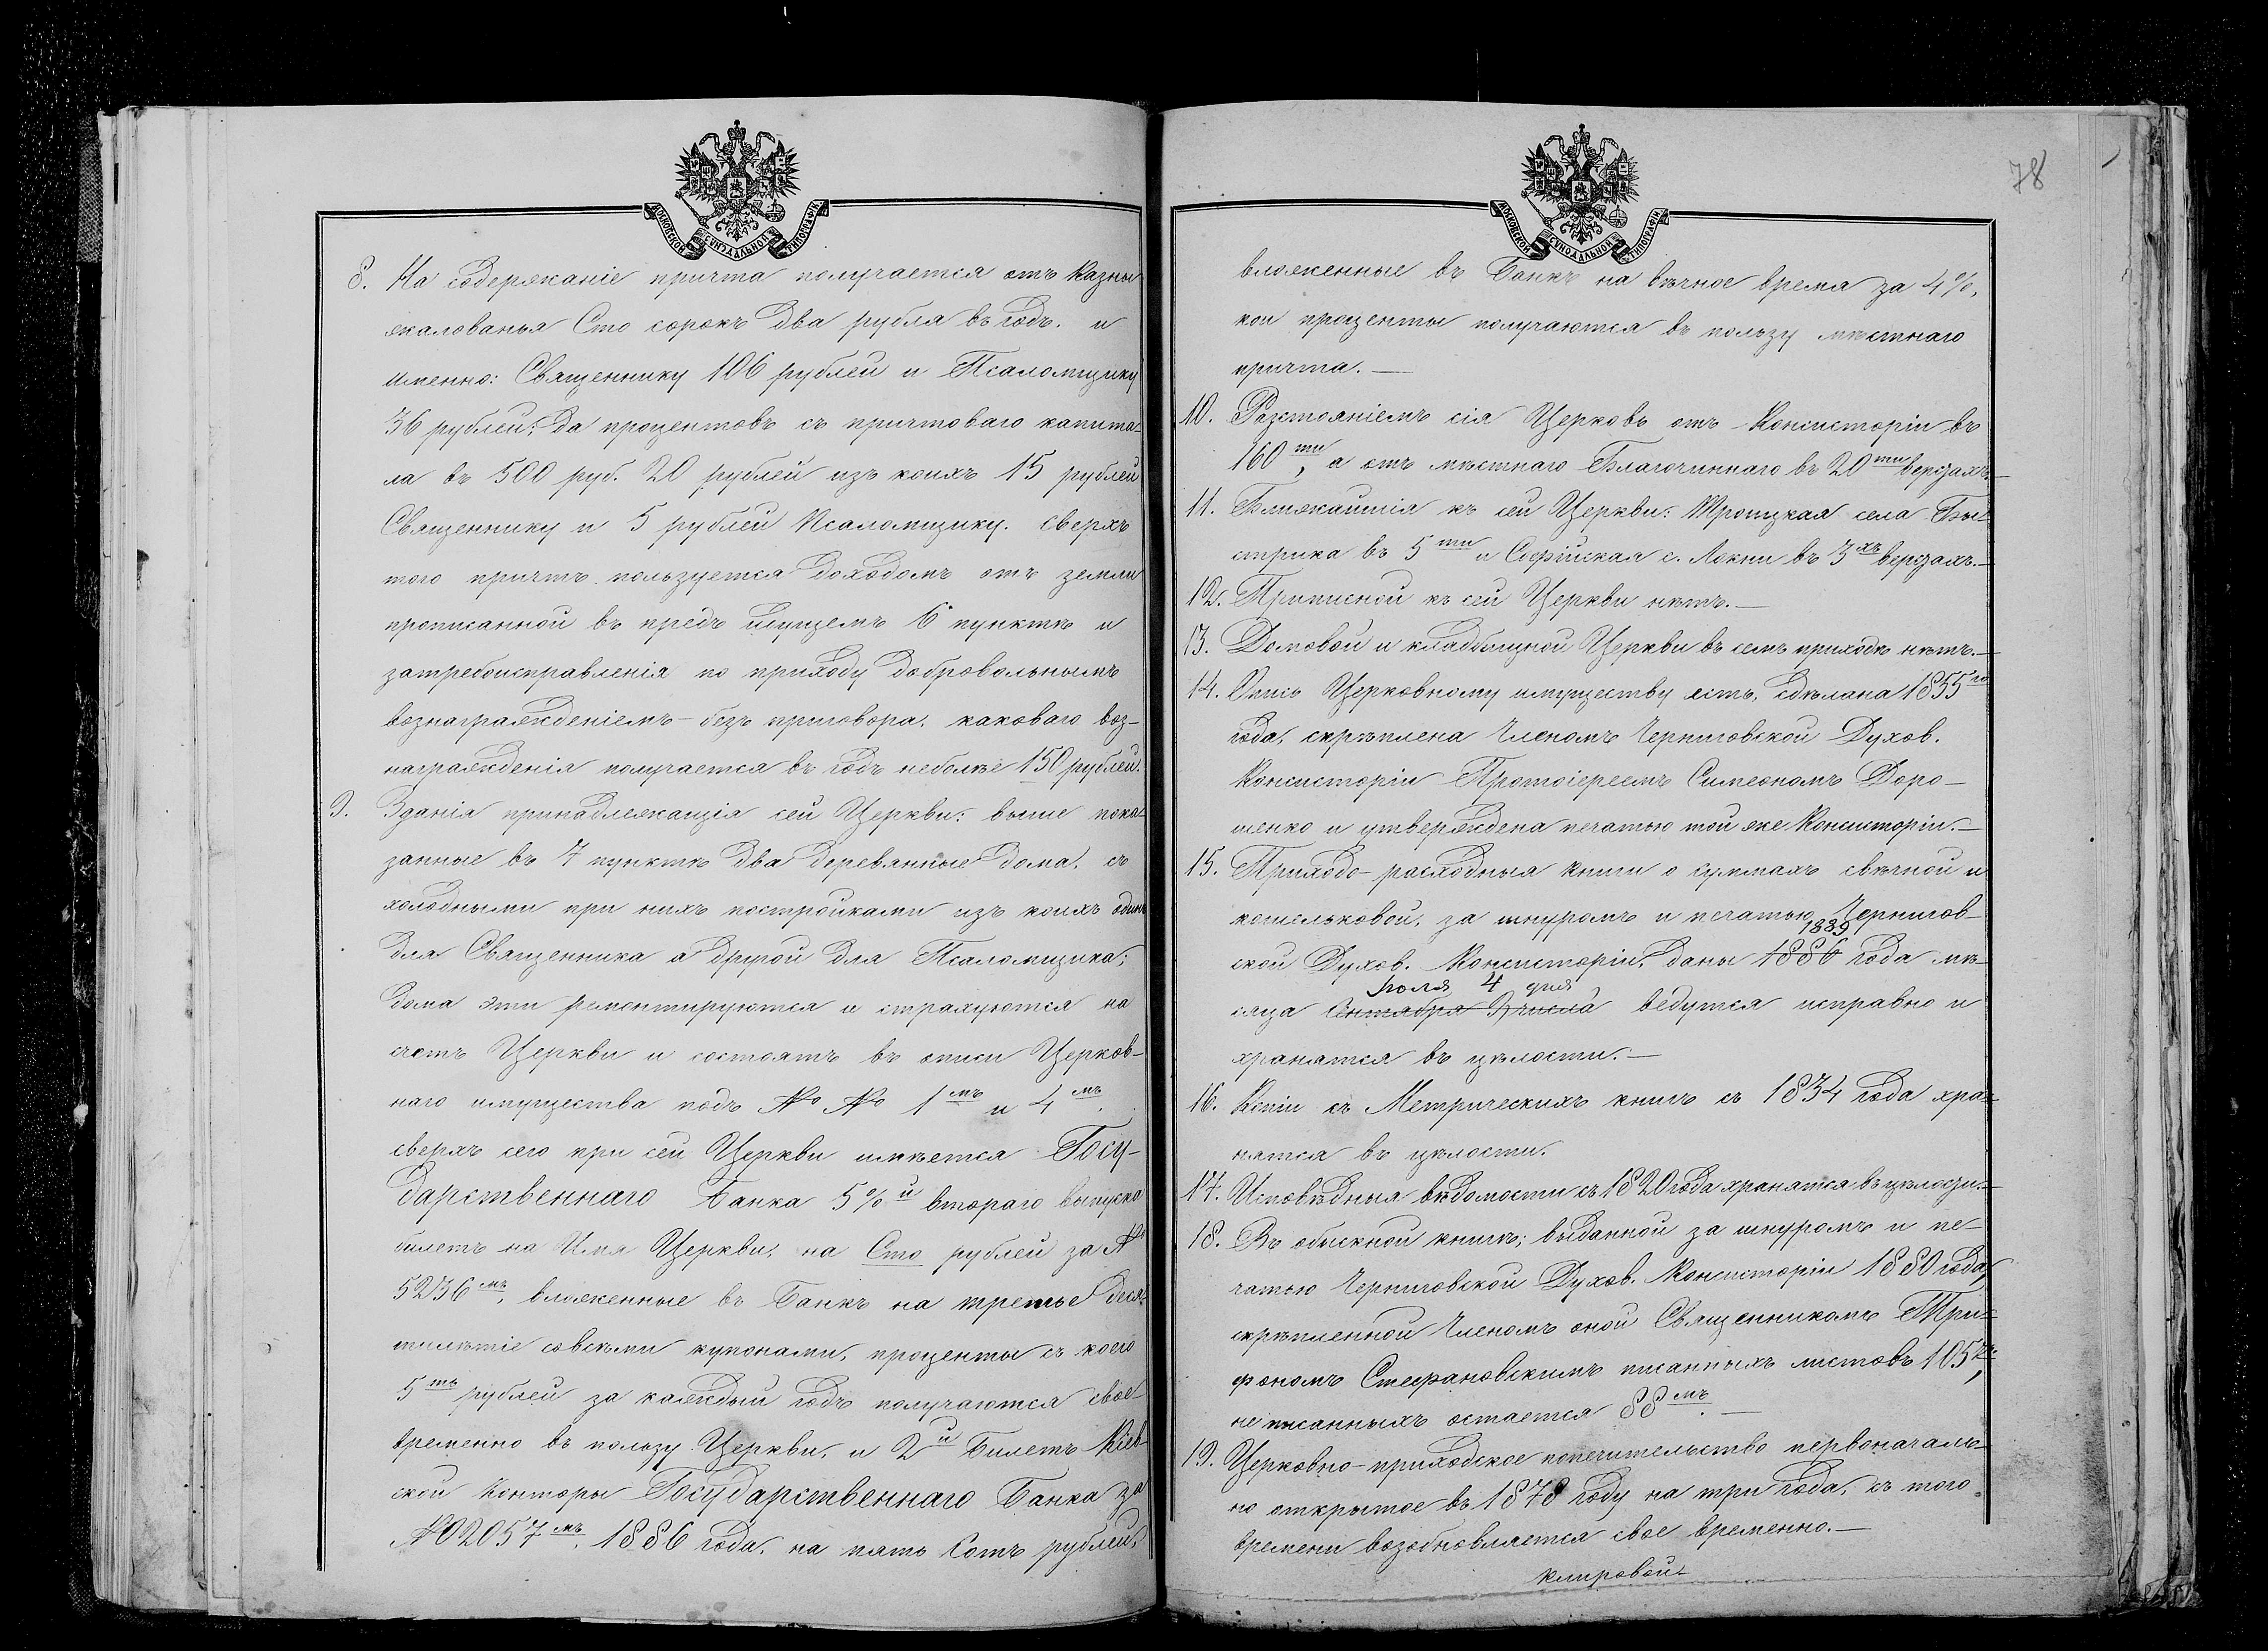 МОСКОВСКОЙ СѴНОДАЛЬНОЙ ТИПОГРАФІИ
8. На содержаніе причта получается отъ Казны
жалованья Сто сорокъ два рубля въ годъ. и
именно: Священнику 106 рублей и Псаломщику
36 рублей; да процентовъ съ причтоваго капита-
ла въ 500 руб. 20 рублей изъ коихъ 15 рублей
Священнику и 5 рублей Псаломщику. сверхъ
того причтъ пользуется доходомъ отъ земли
прописанной въ предъ идущемъ 6 пунктѣ и
затребоисправленія по приходу добровольнымъ
вознагражденіемъ – безъ приговора, каковаго воз-
награжденія получается въ годъ неболѣе 150 рублей.
9. Зданія принадлежащія сей Церкви: выше пока-
занные въ 7 пунктѣ два деревянные дома, съ
холодными при нихъ постройками изъ коихъ одинъ
для Священника а другой для Псаломщика;
дома эти ремонтируются и страхуются на
счетъ Церкви и состоятъ въ описи Церков-
наго имущества подъ №№ 1мъ и 4мъ.
сверхъ сего при сей Церкви имѣется Госу-
дарственнаго Банка 5%й втораго выпуска
билетъ на Имя Церкви, на Сто рублей за №
52136мъ, вложенные въ Банкъ на третье деся-
тилѣтіе совсѣми купонами, проценты съ коего
5ть рублей за каждый годъ получаются свое-
временно въ пользу Церкви, и 2й Билетъ Кіев-
ской Конторы Государственнаго Банка за
№ 02057мъ. 1886 года, на пять Сотъ рублей,
78
МОСКОВСКОЙ СѴНОДАЛЬНОЙ ТИПОГРАФІИ
вложенные въ Банкъ на вѣчное время за 4%,
кои проценты получаются въ пользу мѣстнаго
причта. —
10. Разстояніемъ сія Церковь отъ Консисторіи въ
160ти, а отъ мѣстнаго Благочиннаго въ 20ти верстахъ.—
11. Ближайшія къ сей Церкви: Троицкая села Бы-
стрика въ 5ти и Софійская с. Локни въ 3хъ верстахъ.—
12. Приписной къ сей Церкви нѣтъ.—
13. Домовой и кладбищной Церкви въ семъ приходѣ нѣтъ.—
14. Опись Церковному имуществу есть, сдѣлана 1855го
года, скрѣплена Членомъ Черниговской Духов.
Консисторіи Протоіереемъ Симеономъ Доро-
шенко и утверждена печатью той же Консисторіи.—
15. Приходо-расходныя книги о суммахъ свѣчной и
кошельковой, за шнуромъ и печатью Чернигов-
1889
ской Духов. Консисторіи, даны 1886 года мѣ-
Іюля 4 дня
сяца Сентября 9 числа ведутся исправно и
хранятся въ цѣлости.—
16. Копіи съ Метрическихъ книгъ съ 1834 года хра-
нятся въ цѣлости.
17. Исповѣдныя вѣдомости съ 1820 года хранятся въ цѣлости.—
18. Въ обыскной книгѣ; выданной за шнуромъ и пе-
чатью Черниговской Духов. Консисторіи 1880 года,
скрѣпленной Членомъ оной Священникомъ Три-
фономъ Стефановскимъ писанныхъ листовъ 105ть,
не писанныхъ остается 88мъ. —
19. Церковно-приходское попечительство первоначаль-
но открытое въ 1878 году на три года, съ того
времени возобновляется свое временно.—
клировой